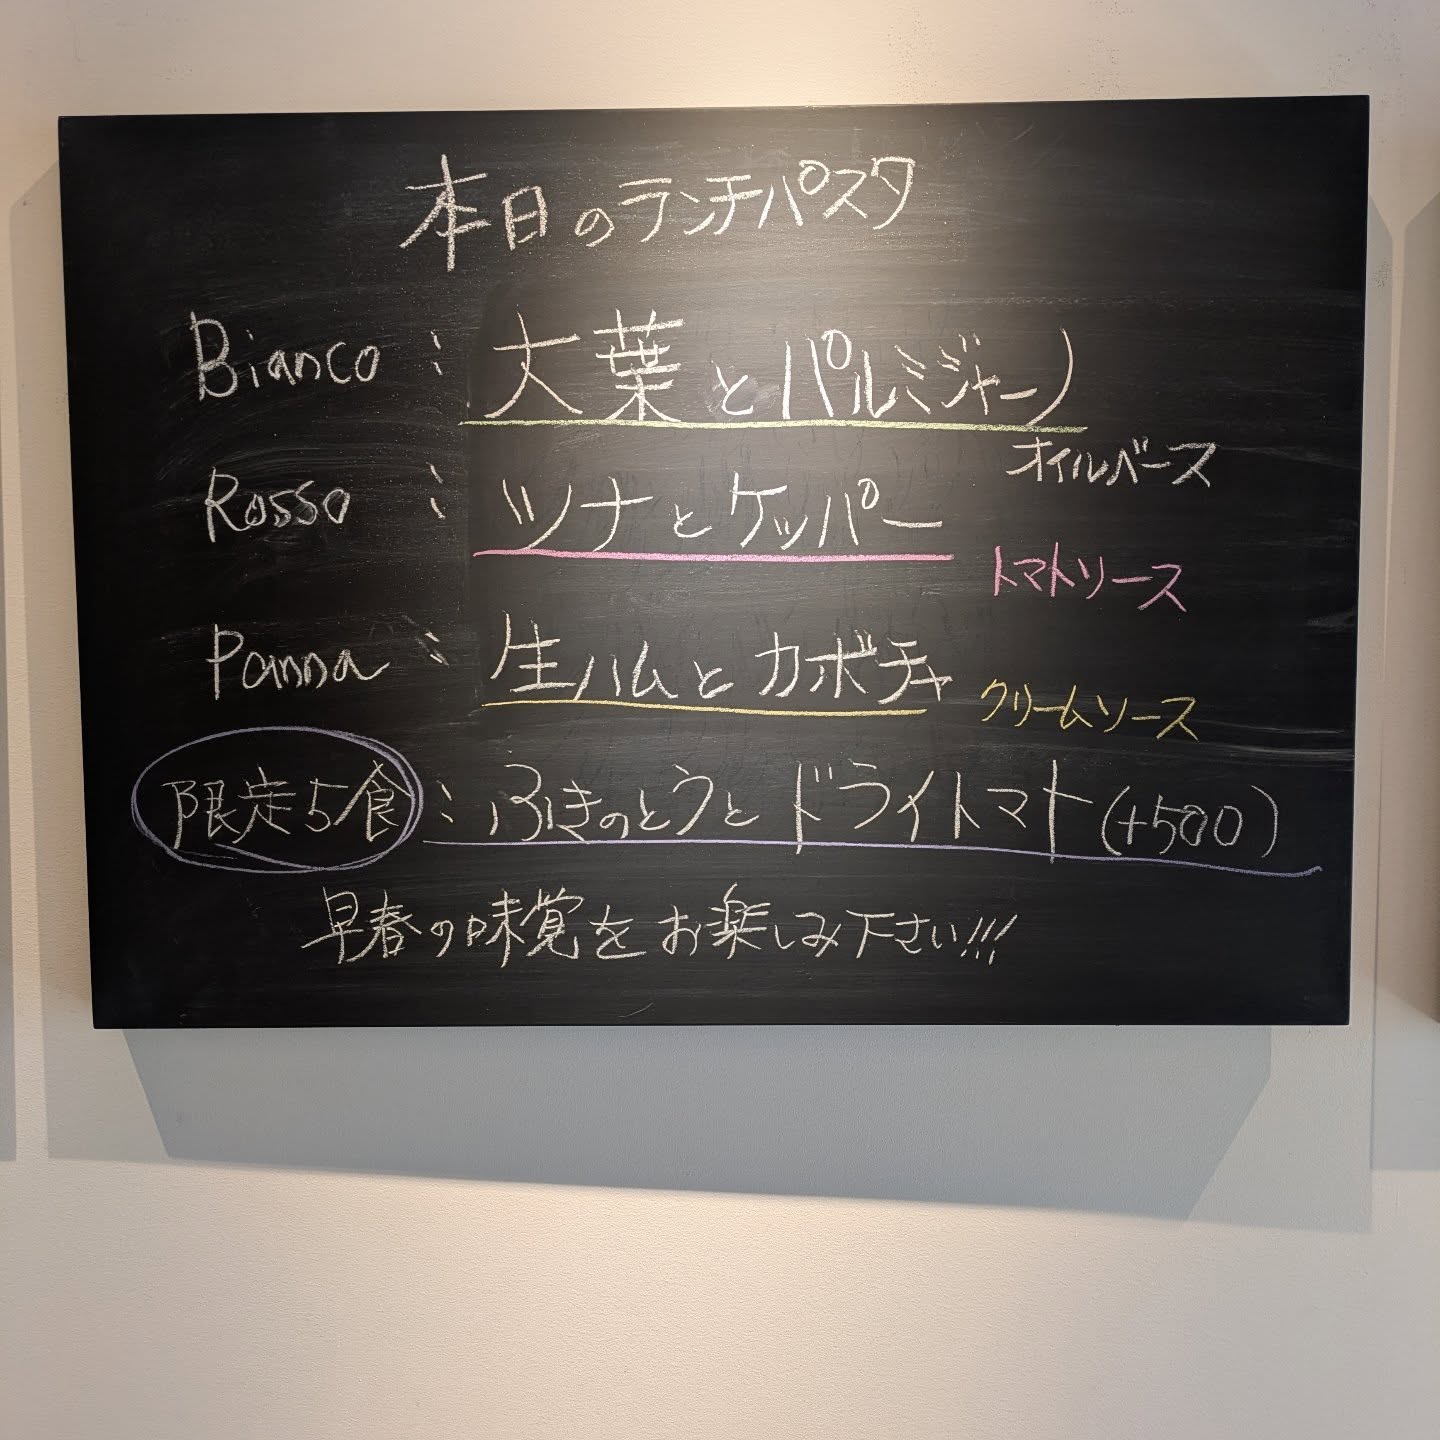 本日のランチパスタ
Bianco : 大葉とパルミジャーノ
オイルベース
Rosso : ツナとケッパー
トマトソース
Panna : 生ハムとカボチャ
クリームソース
限定5食 : ふきのとうとドライトマト(+500)
早春の味覚をお楽しみ下さい!!!